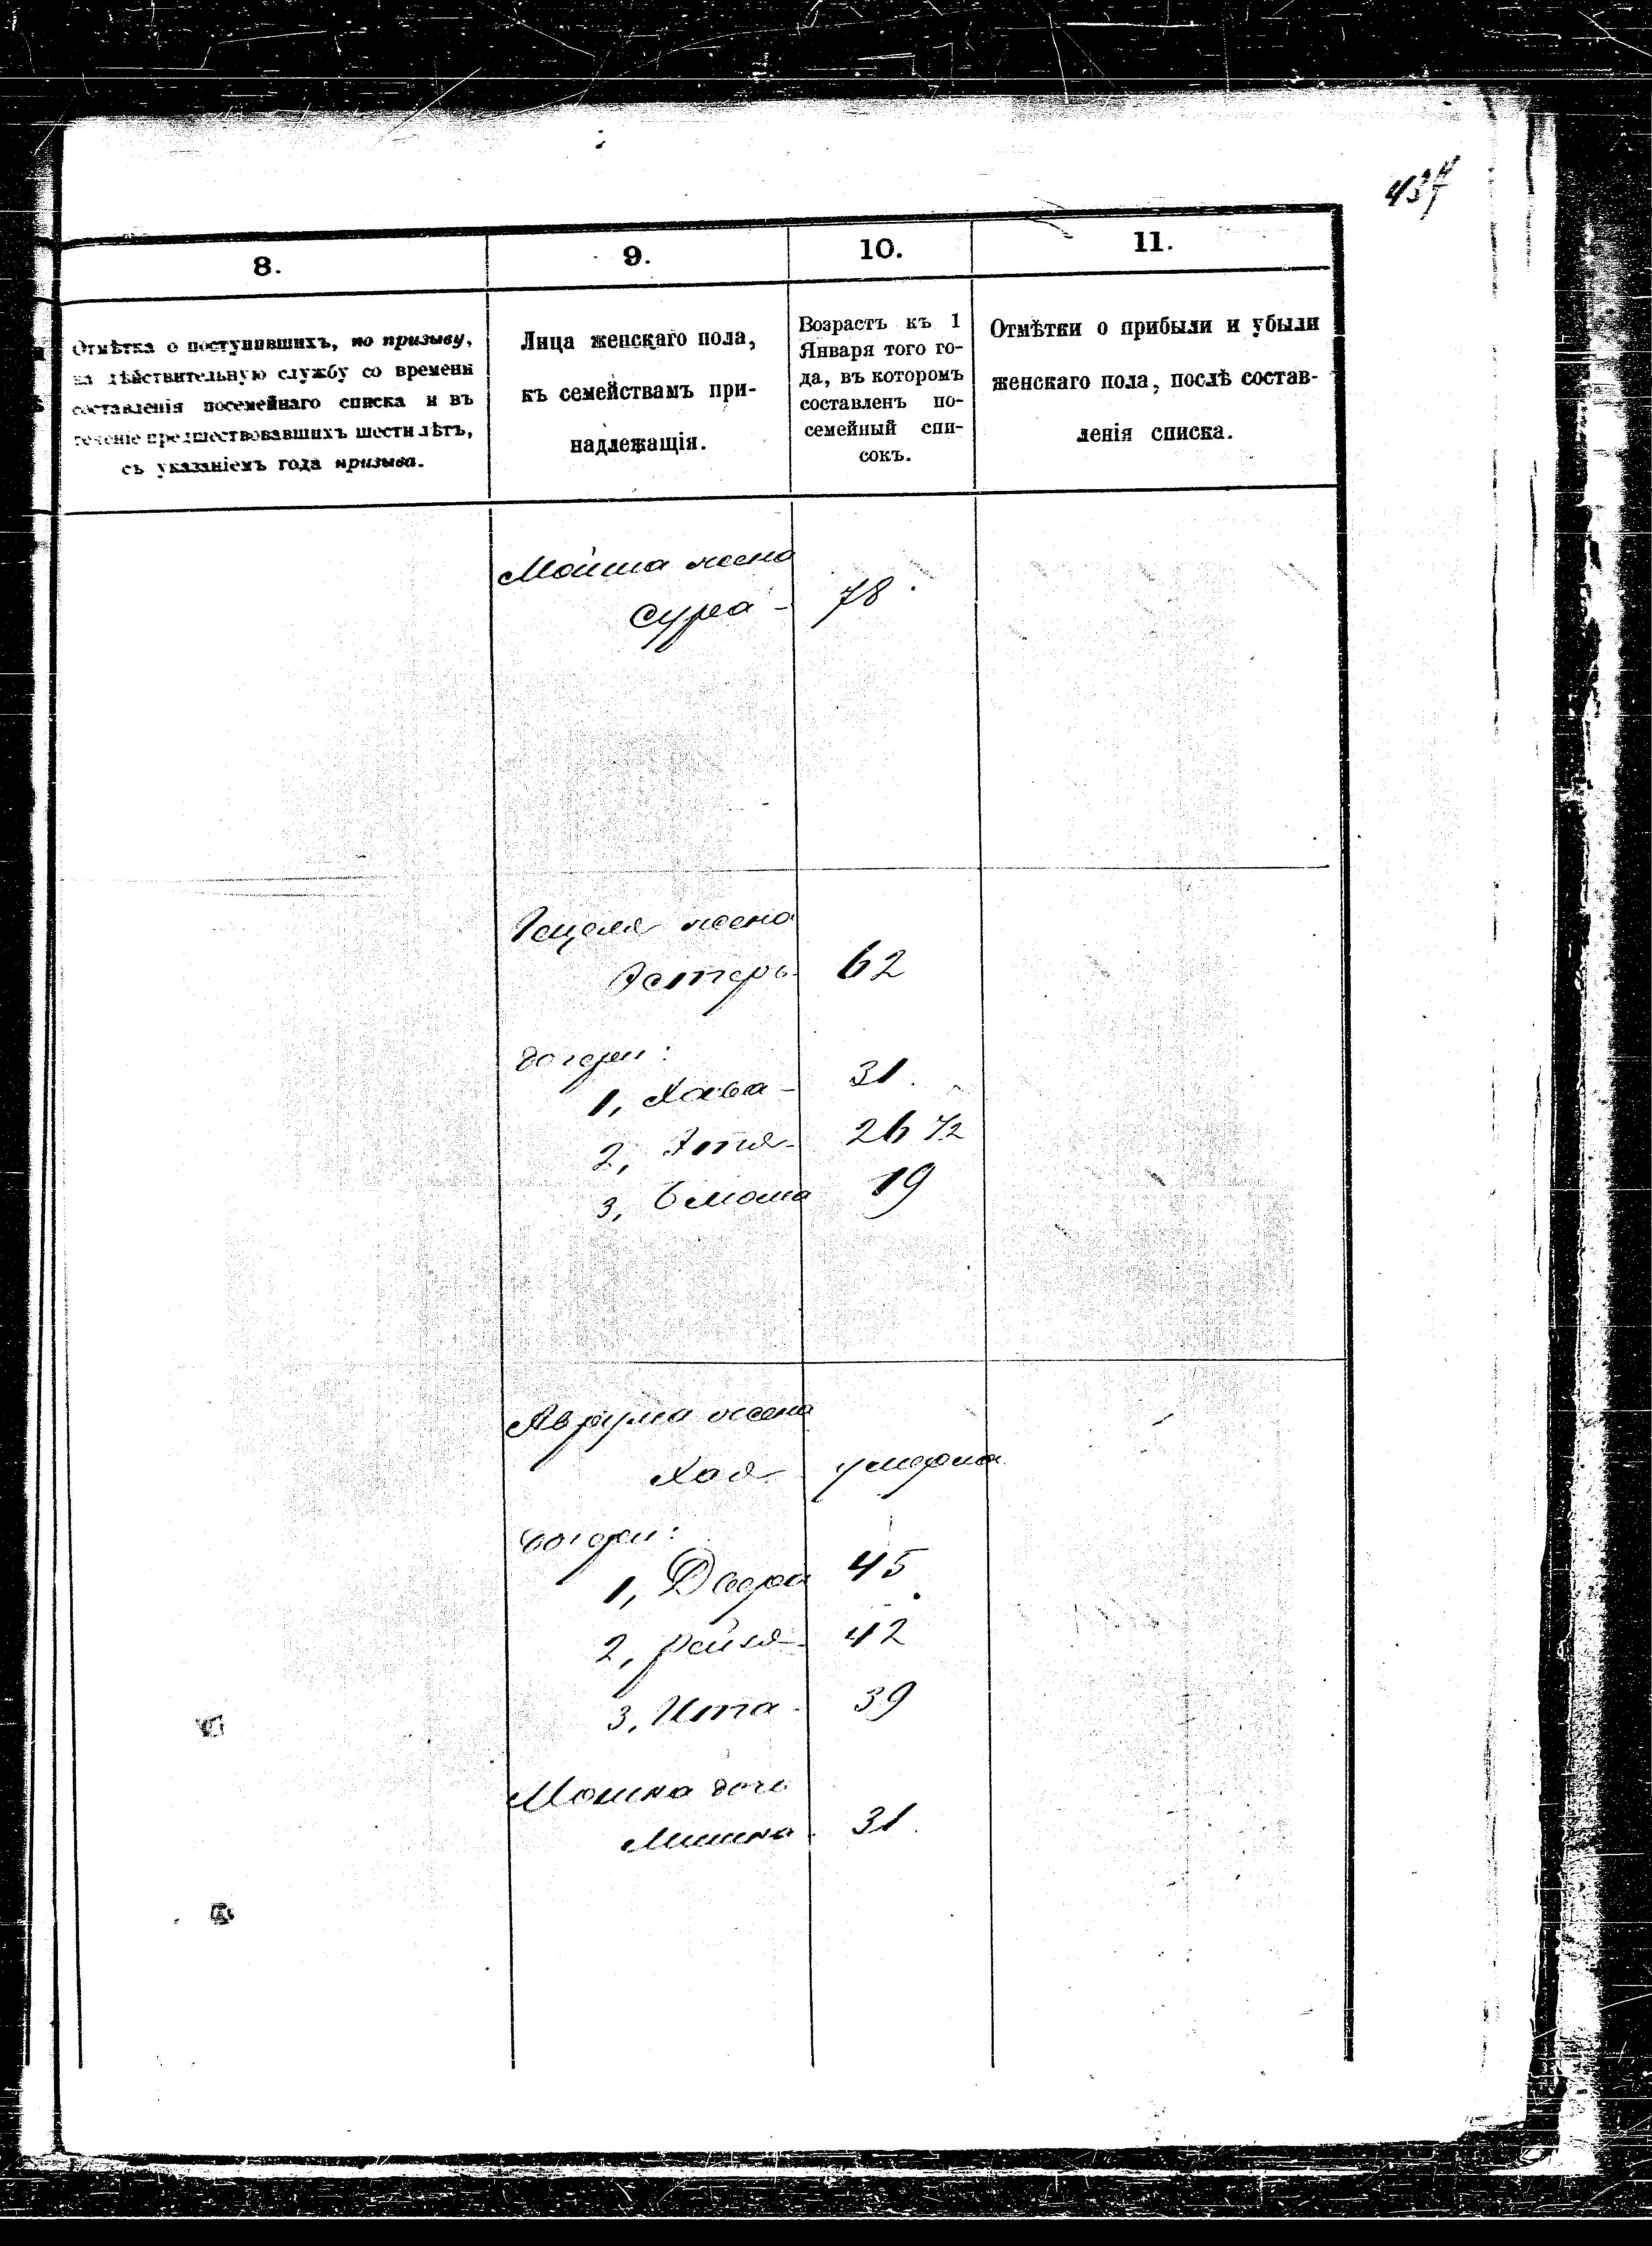 437
8.
9.
10.
11.
Отмѣтка о поступившихъ, по призыву,
на дѣйствительную службу со времени
составленія посемейнаго списка и въ
теченіе предшествовавшихъ шести лѣтъ,
съ указаніемъ года призыва.
Лица женскаго пола,
къ семействамъ при-
надлежащія.
Возрастъ къ 1
Января того го-
да, въ которомъ
составленъ по-
семейный спи-
сокъ.
Отмѣтки о прибыли и убыли
женскаго пола, послѣ состав-
ленія списка.
Мойша жена
Сура - 78
Гецеля жена
Эстеръ 62
дочери:
1, Хава - 31.
2, Этя - 26 1/2
3, 19
Аврума жена
Хая умерла
дочери:
1, Двера 45
2, Рейзя - 42
3, Ита - 39
Мошка дочь
31.